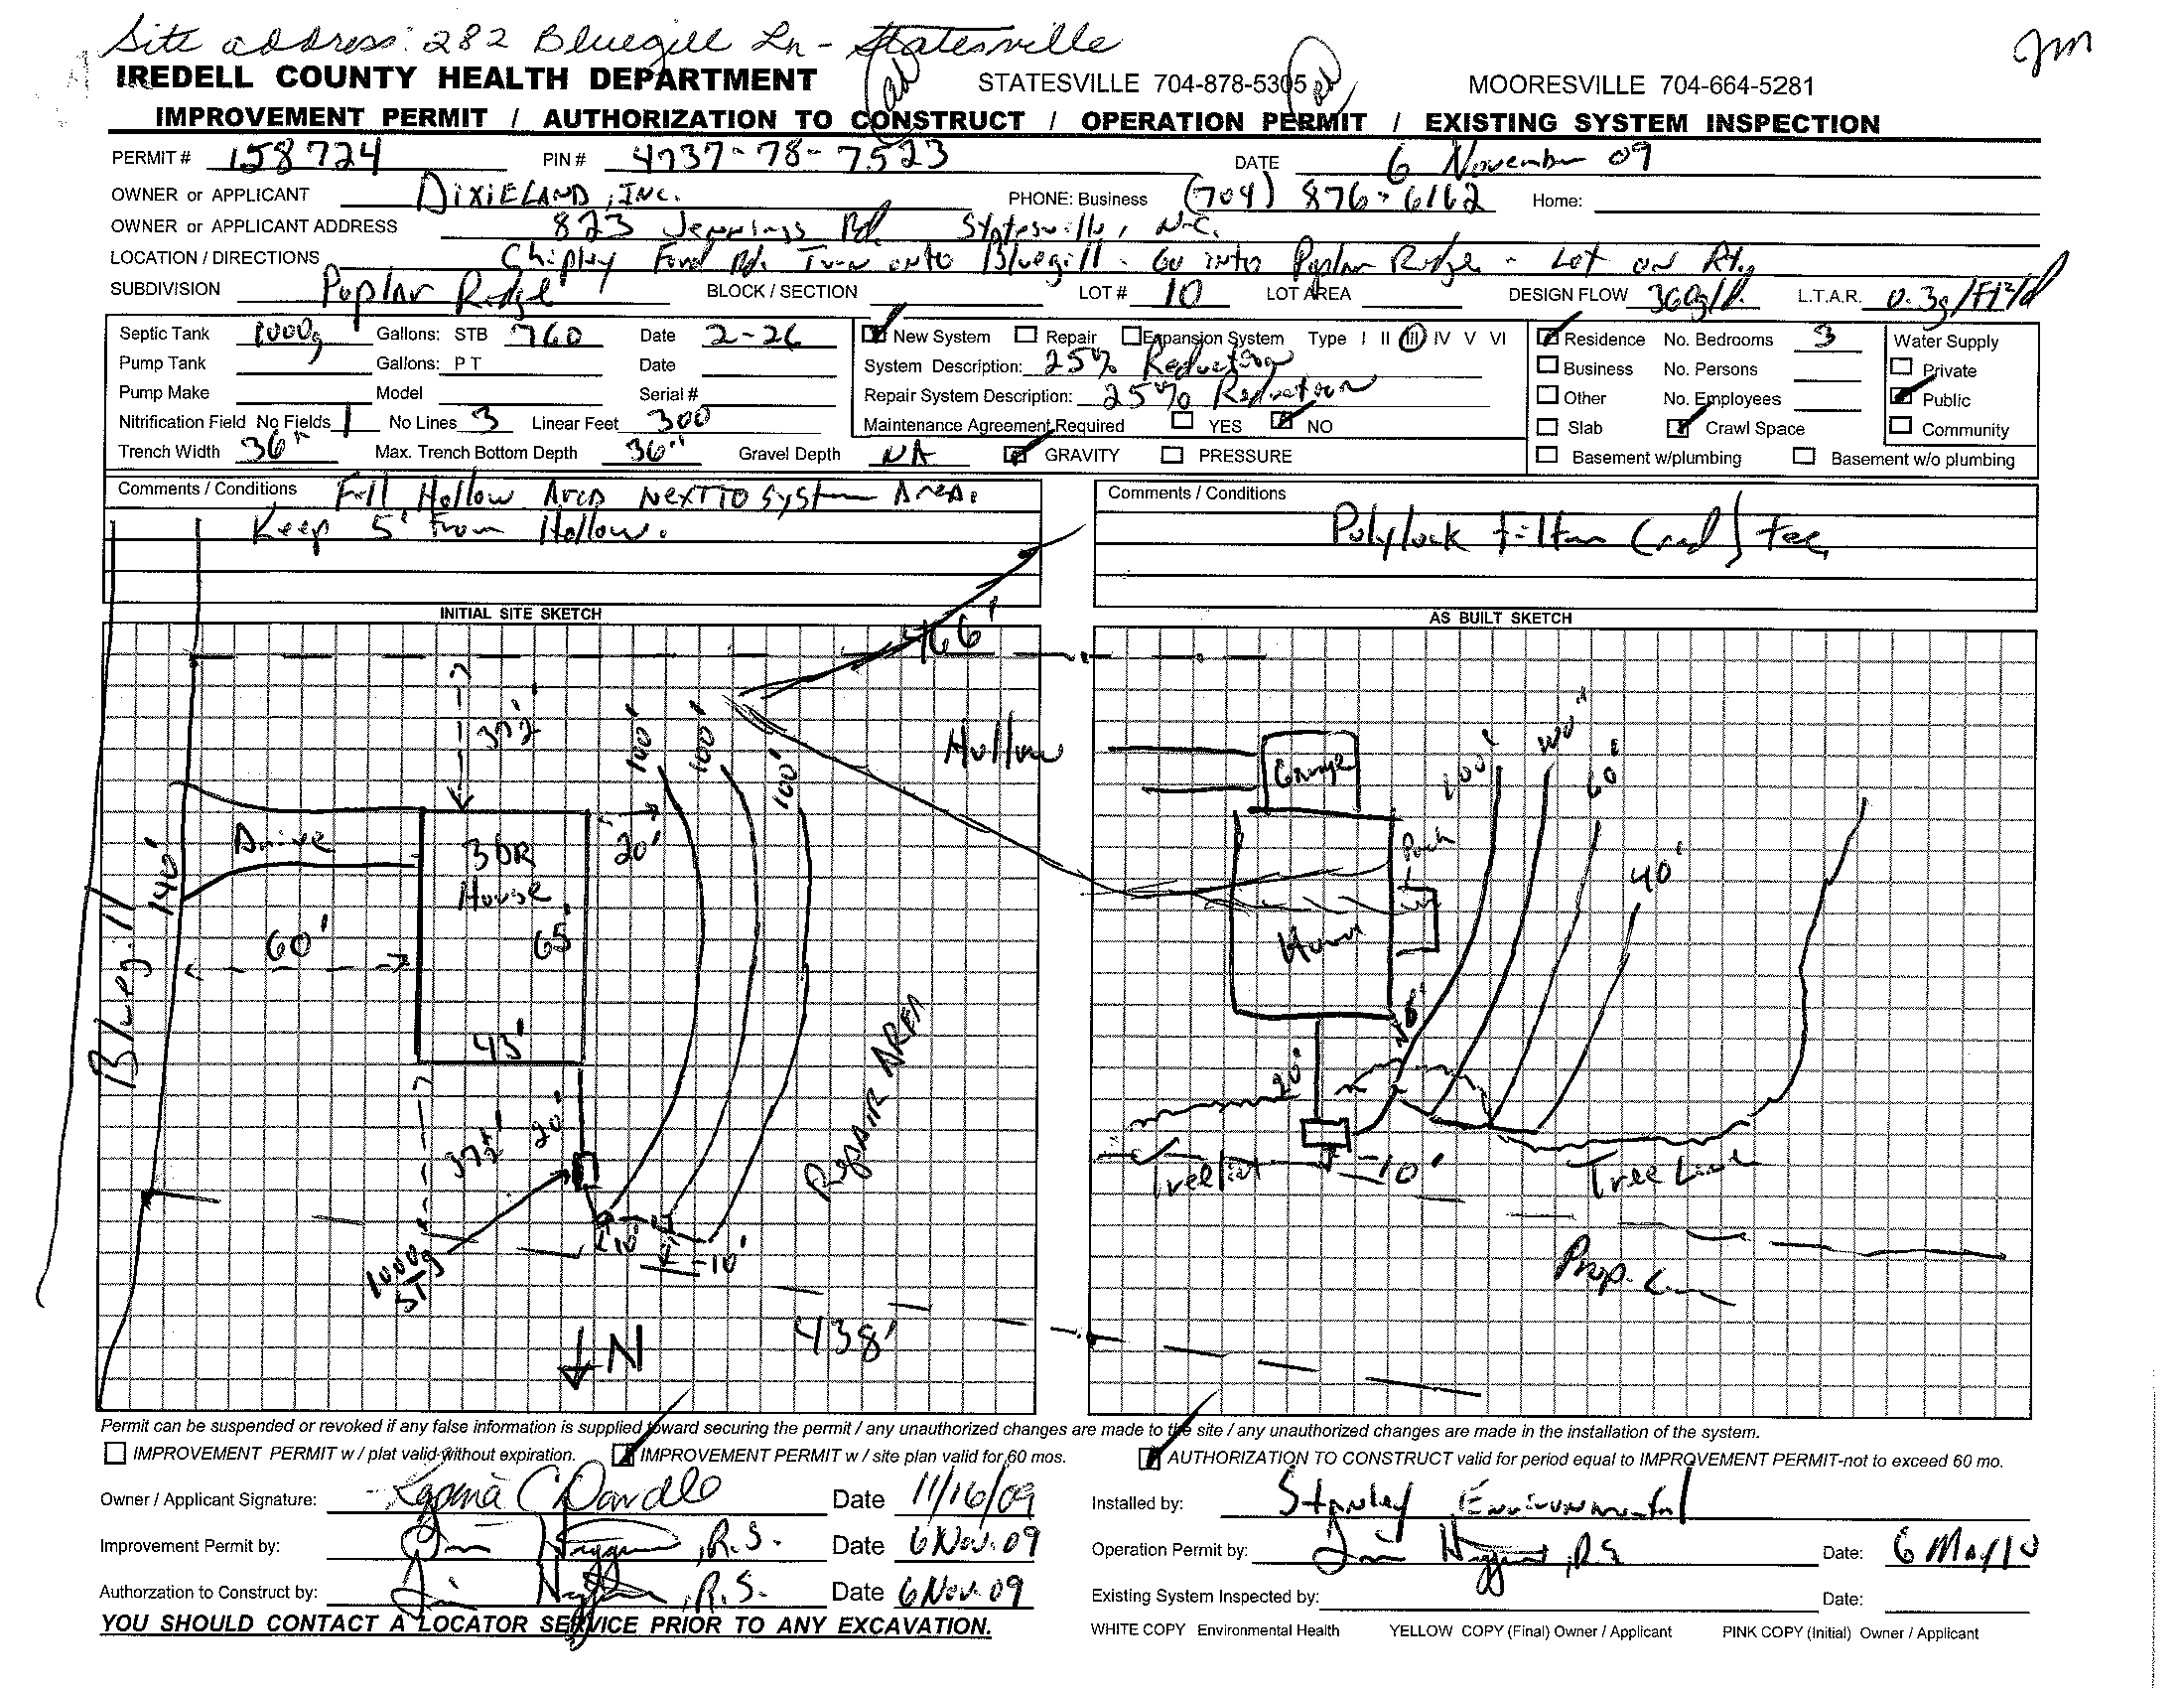 Site address: 282 Bluegill Ln - Statesville
Jm
IREDELL COUNTY HEALTH DEPARTMENT STATESVILLE 704-878-5305 MOORESVILLE 704-664-5281
IMPROVEMENT PERMIT / AUTHORIZATION TO CONSTRUCT / OPERATION PERMIT / EXISTING SYSTEM INSPECTION
PERMIT # 158724 PIN # 4737-78-7523 DATE 6 November 09
OWNER or APPLICANT DIXIELAND, INC. PHONE: Business (704) 876-6162 Home:
OWNER or APPLICANT ADDRESS 823 Jennings Rd. Statesville, N.C.
LOCATION / DIRECTIONS Chipley Ford Rd. Turn onto Bluegill - Go into Poplar Ridge - Lot on Rt.
SUBDIVISION Poplar Ridge BLOCK / SECTION LOT # 10 LOT AREA DESIGN FLOW 360g/d. L.T.A.R. 0.3g/Ft²/d
Septic Tank 1000g Gallons: STB 760 Date 2-26 New System Repair Expansion System Type I II III IV V VI Residence No. Bedrooms 3 Water Supply
Pump Tank Gallons: P T Date System Description: 25% Reduction Business No. Persons Private
Pump Make Model Serial # Repair System Description: 25% Reduction Other No. Employees Public
Nitrification Field No Fields 1 No Lines 3 Linear Feet 300 Maintenance Agreement Required YES NO Slab Crawl Space Community
Trench Width 36" Max. Trench Bottom Depth 36" Gravel Depth NA GRAVITY PRESSURE Basement w/plumbing Basement w/o plumbing
Comments / Conditions Fill Hollow Area Next to System Area.
Keep 5' From Hollow.
Comments / Conditions
Polylock Filter (red) Tee
INITIAL SITE SKETCH
466'
37½'
100'
100'
100'
Hollow
Drive
3BR
House
20'
140'
Bluegill
60'
65'
43'
REPAIR AREA
37½'
20'
10'
10'
1000g
ST
438'
N
AS BUILT SKETCH
Garage
100'
100'
60'
40'
Porch
House
8'
20'
Tree Line
10'
Prop. L
Permit can be suspended or revoked if any false information is supplied toward securing the permit / any unauthorized changes are made to the site / any unauthorized changes are made in the installation of the system.
IMPROVEMENT PERMIT w / plat valid without expiration. IMPROVEMENT PERMIT w / site plan valid for 60 mos. AUTHORIZATION TO CONSTRUCT valid for period equal to IMPROVEMENT PERMIT-not to exceed 60 mo.
Owner / Applicant Signature: Date 11/16/09 Installed by: Stanley Environmental
Improvement Permit by: , R.S. Date 6 Nov. 09 Operation Permit by: , R.S. Date: 6 May 10
Authorzation to Construct by: , R.S. Date 6 Nov. 09 Existing System Inspected by: Date:
YOU SHOULD CONTACT A LOCATOR SERVICE PRIOR TO ANY EXCAVATION.
WHITE COPY Environmental Health YELLOW COPY (Final) Owner / Applicant PINK COPY (Initial) Owner / Applicant